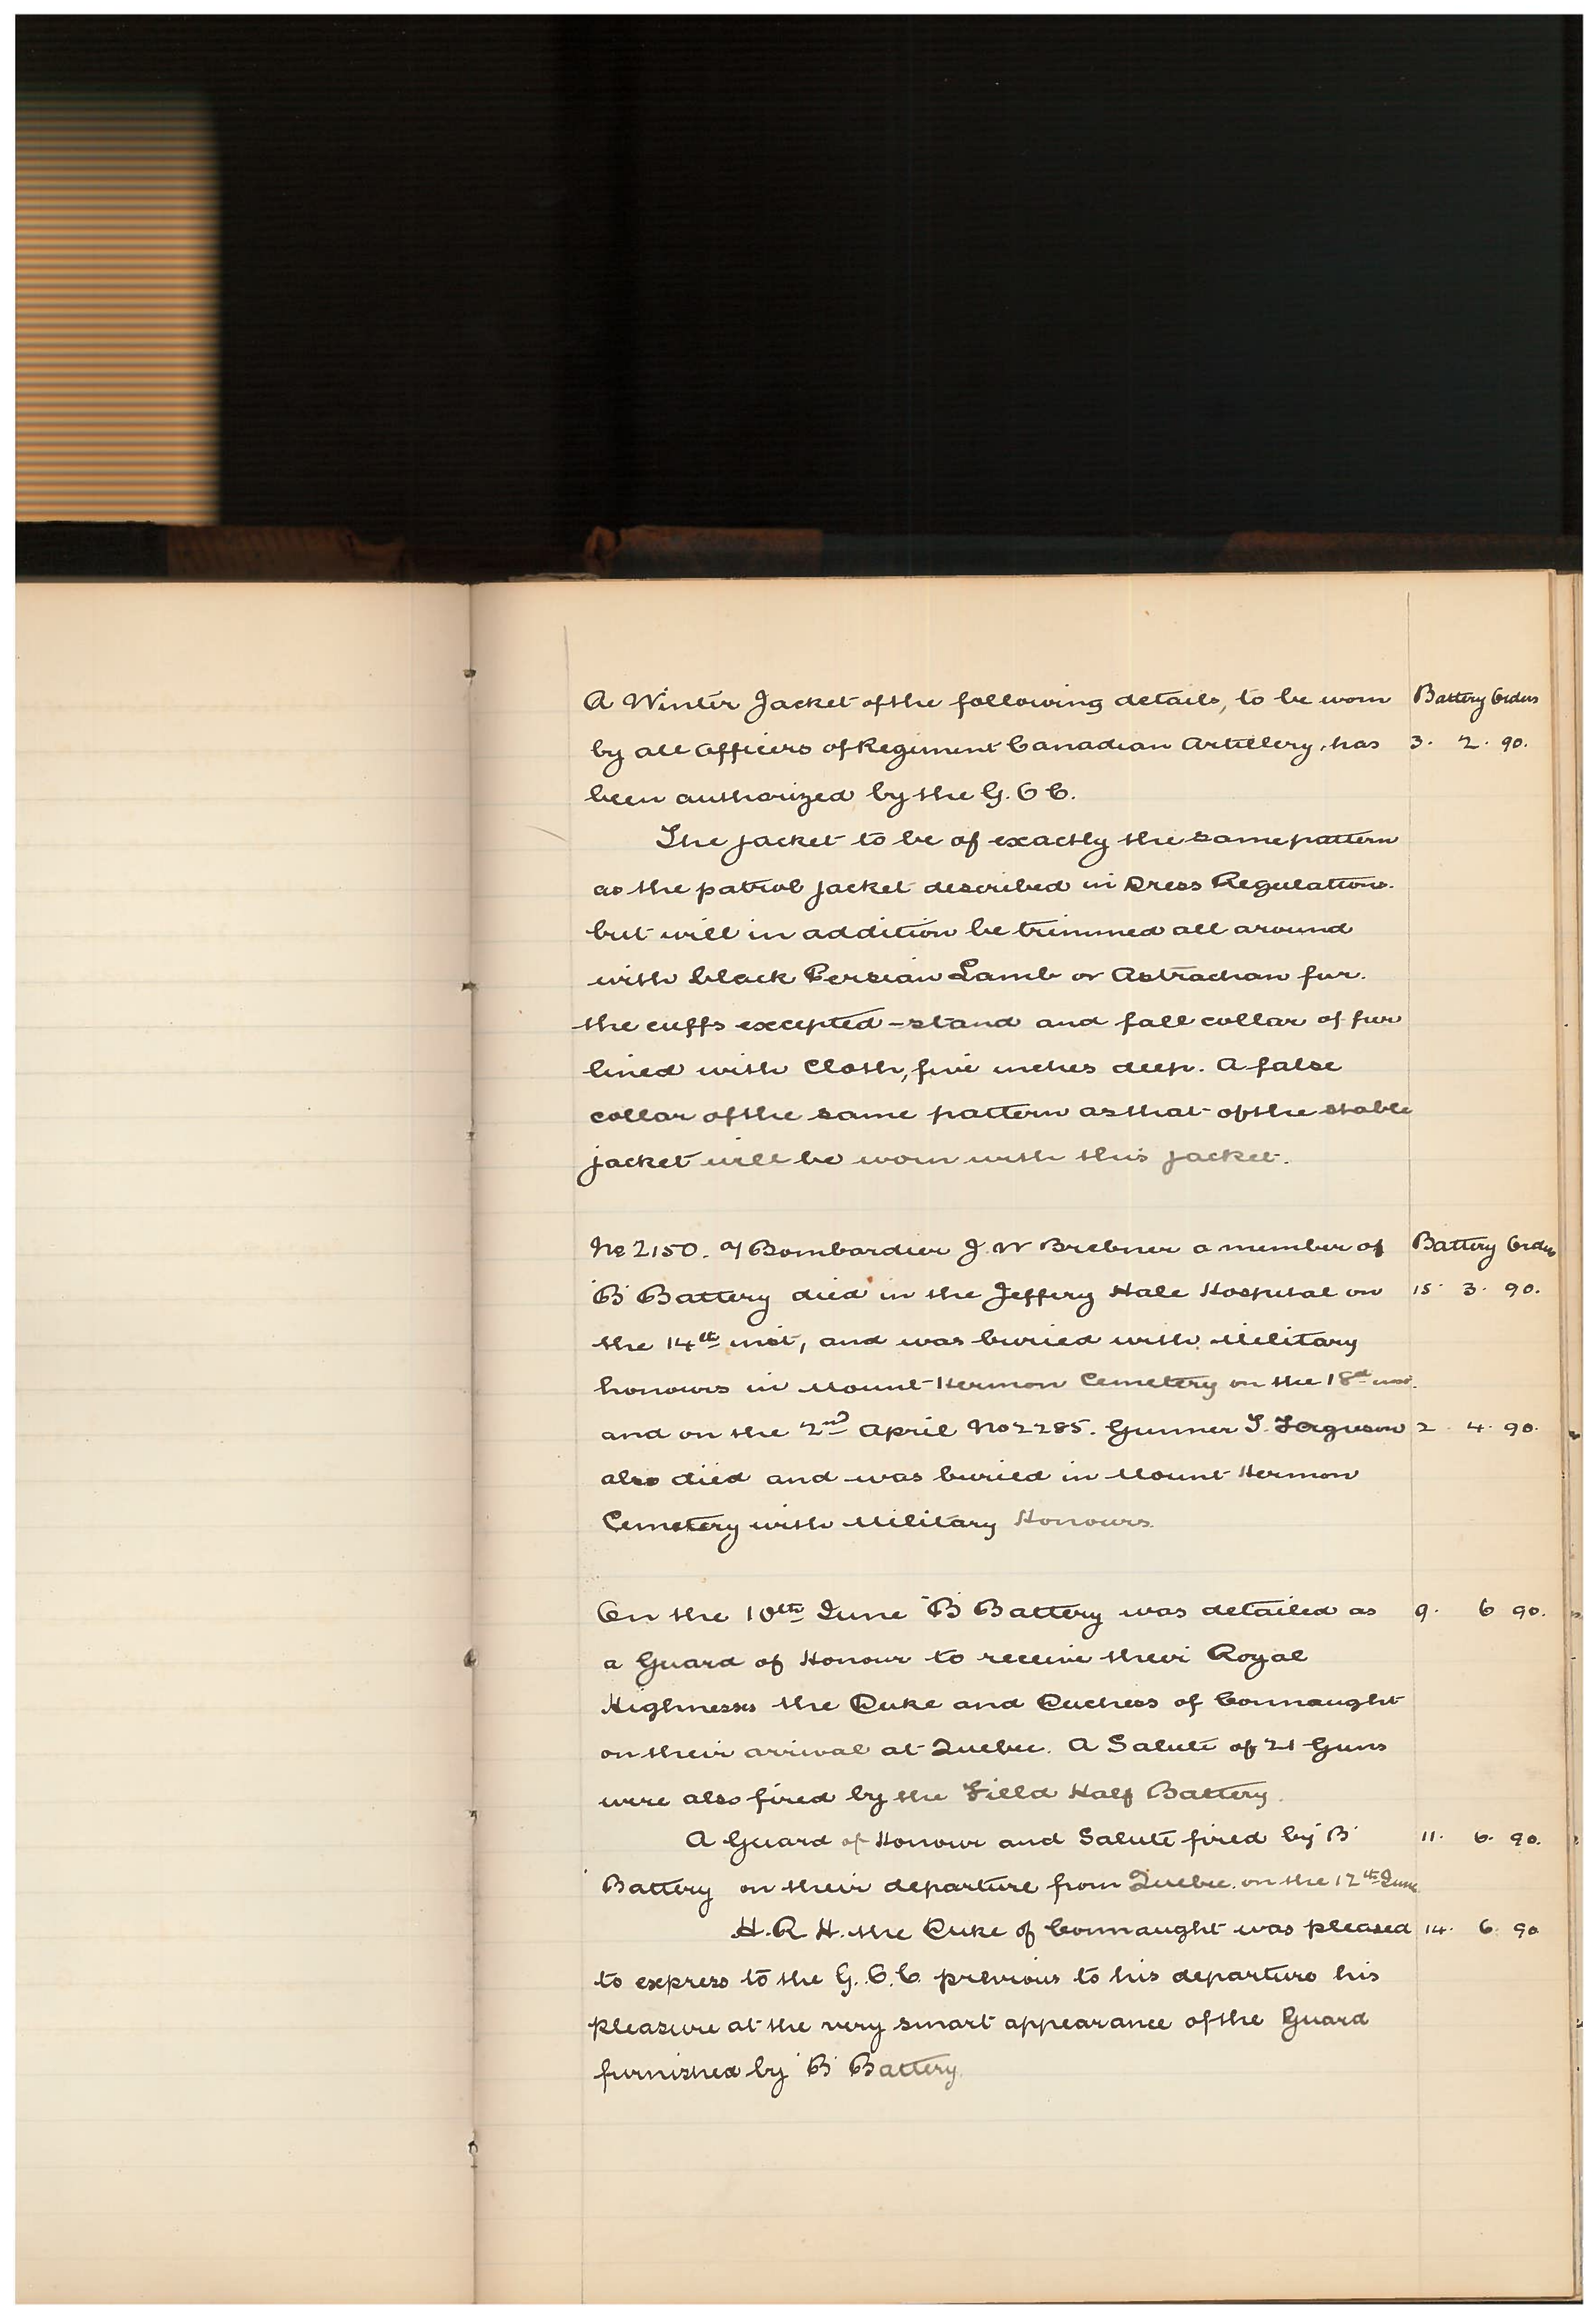 A Winter Jacket of the following details, to be worn Battery Orders
by all Officers of Regiment Canadian Artillery, has 3. 2. 90.
been authorized by the G. O C.
The jacket to be of exactly the same pattern
as the patrol jacket described in Dress Regulations.
but will in addition be trimmed all around
with black Persian Lamb or Astrachan fur.
the cuffs excepted - stand and fall collar of fur
lined with Cloth, five inches deep. A false
collar of the same pattern as that of the stable
jacket will be worn with this jacket.
No 2150. a/ Bombardier J. W Brebner a member of Battery Orders
"B" Battery died in the Jeffery Hale Hospital on 15 3. 90.
the 14th inst, and was buried with Military
honours in Mount Hermon Cemetery on the 18th inst.
and on the 2nd April No 2285. Gunner T. Ferguson 2. 4. 90.
also died and was buried in Mount Hermon
Cemetery with Military Honours.
On the 10th June "B" Battery was detailed as 9. 6 90.
a Guard of Honour to receive their Royal
Highnesses the Duke and Duchess of Connaught
on their arrival at Quebec. A Salute of 21 Guns
were also fired by the Field Half Battery.
A Guard of Honour and Salute fired by "B" 11. 6. 90.
Battery on their departure from Quebec. on the 12th June
H. R H. the Duke of Connaught was pleased 14. 6 90
to express to the G. O. C. previous to his departure his
pleasure at the very smart appearance of the Guard
furnished by "B" Battery.